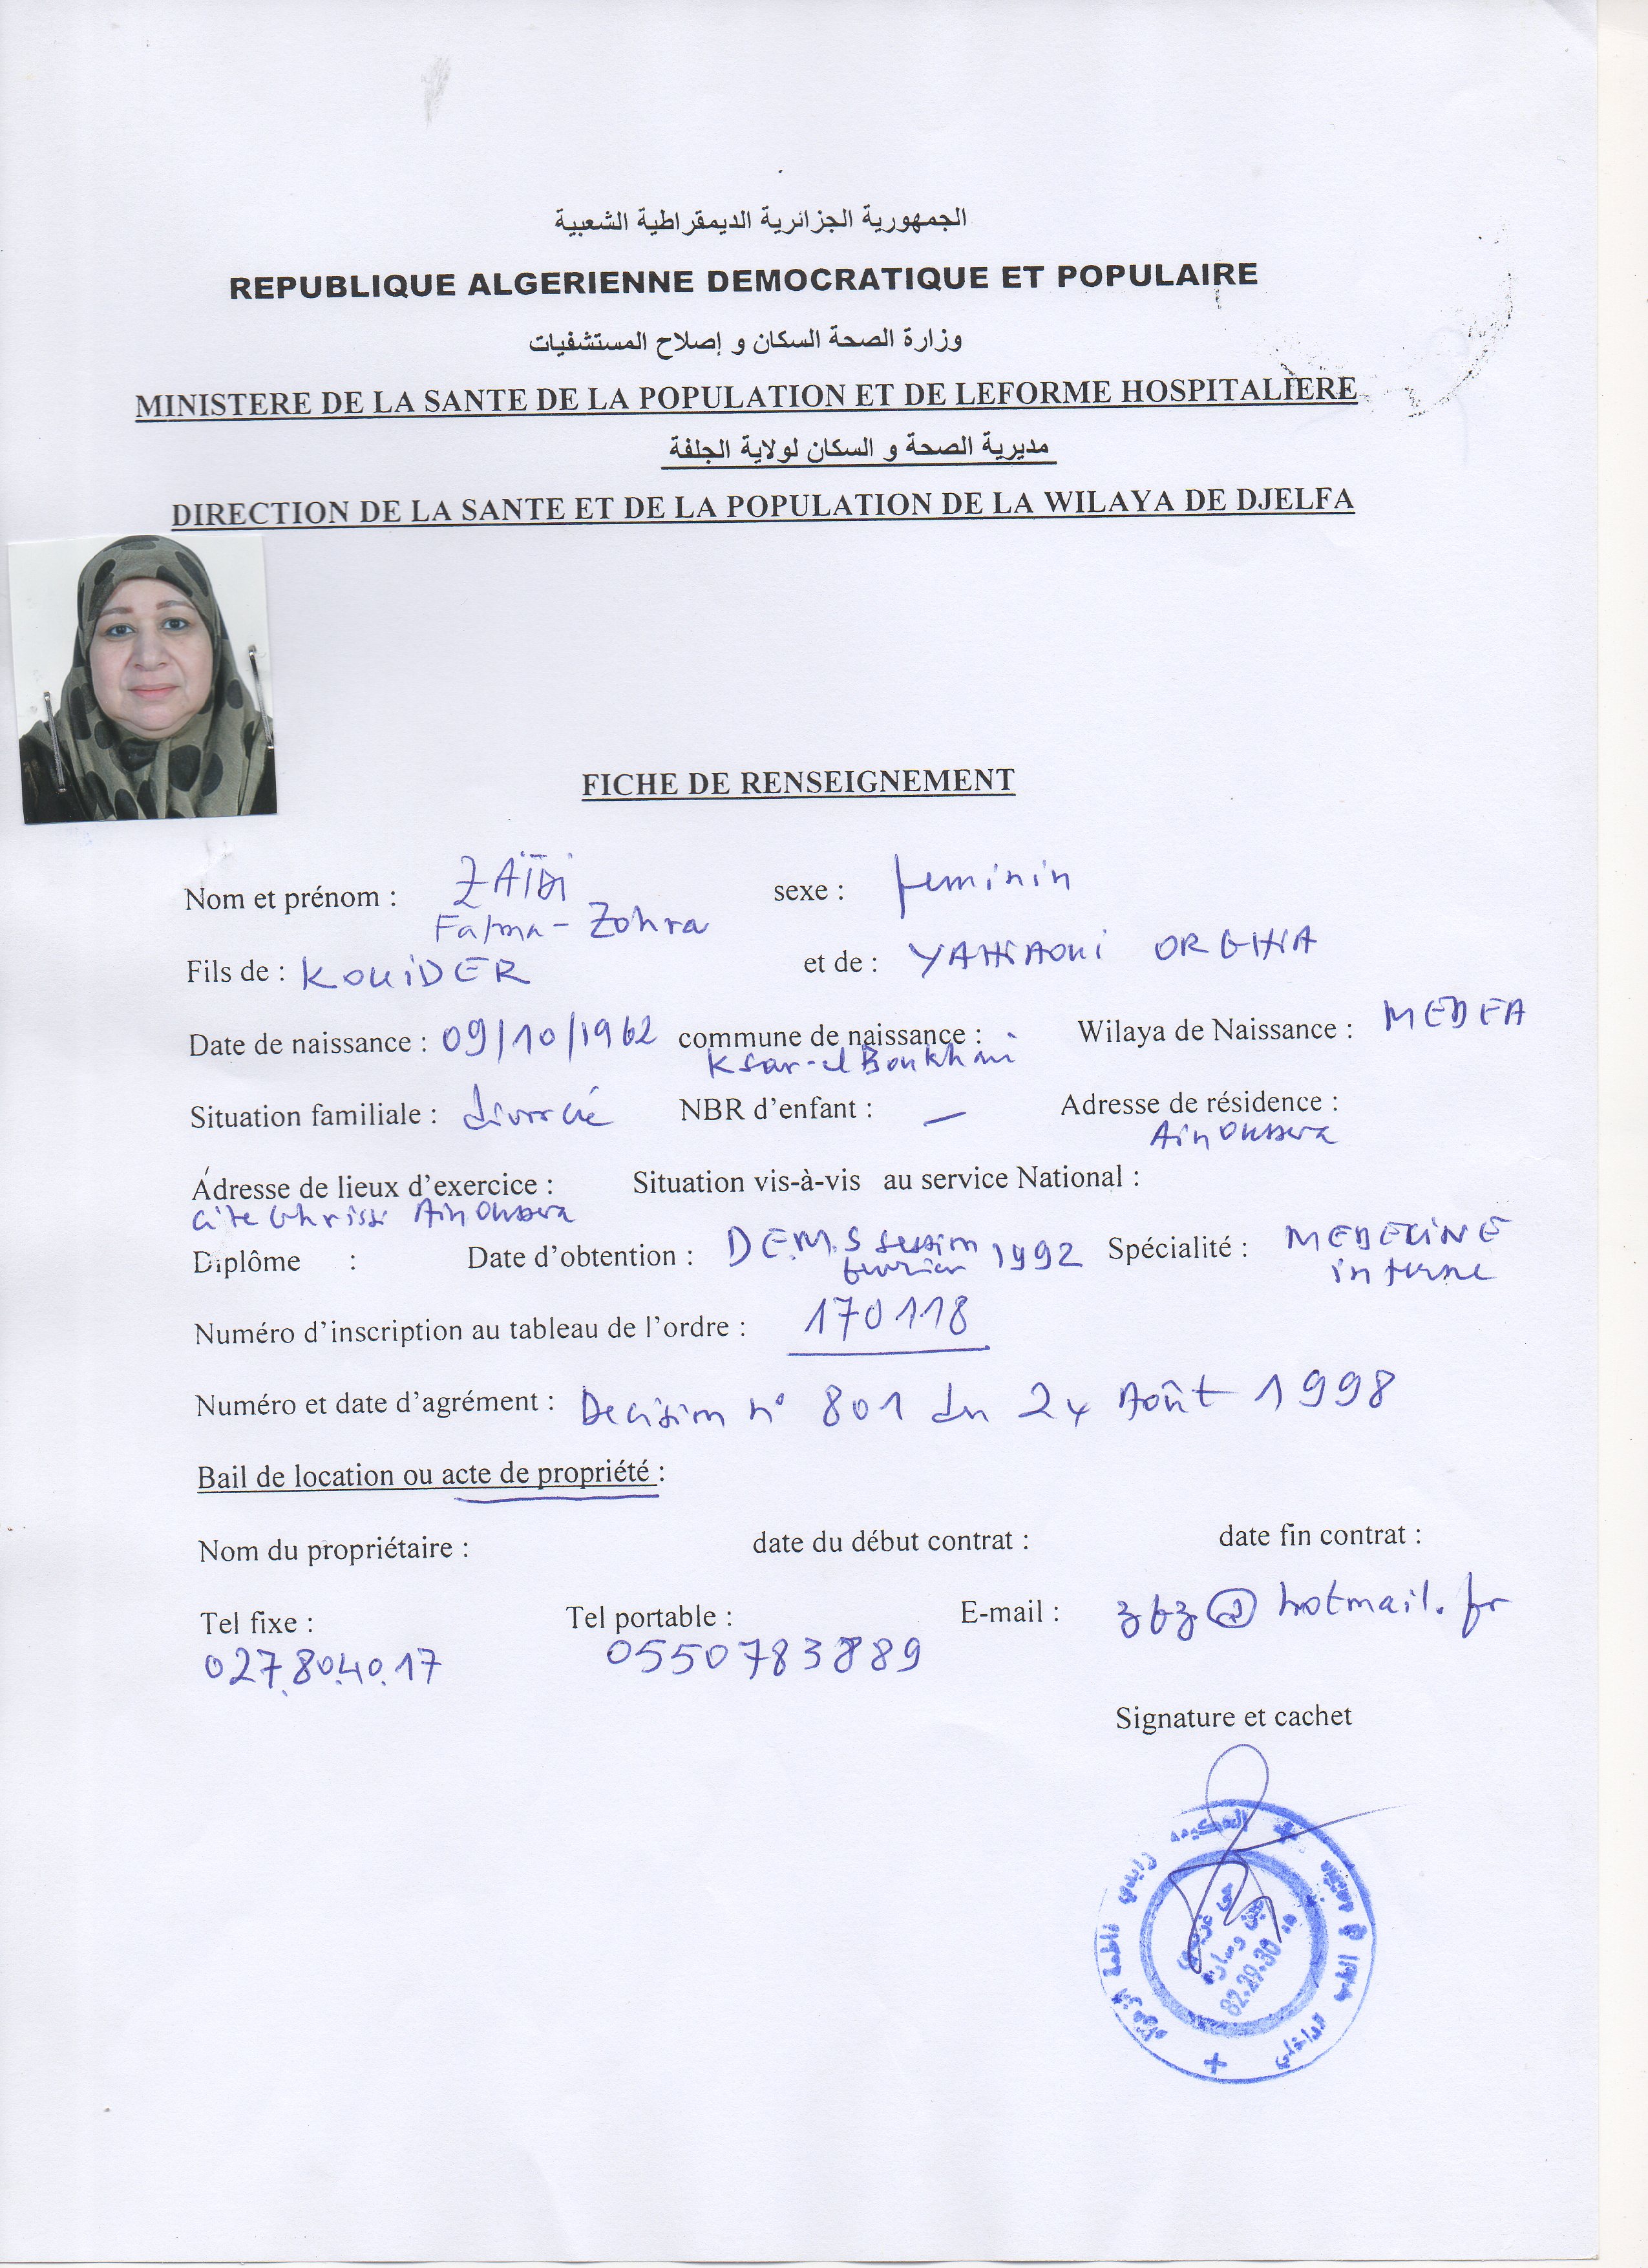 الجمهورية الجزائرية الديمقراطية الشعبية
REPUBLIQUE ALGERIENNE DEMOCRATIQUE ET POPULAIRE
وزارة الصحة السكان و إصلاح المستشفيات
MINISTERE DE LA SANTE DE LA POPULATION ET DE LEFORME HOSPITALIERE
مديرية الصحة و السكان لولاية الجلفة
DIRECTION DE LA SANTE ET DE LA POPULATION DE LA WILAYA DE DJELFA
FICHE DE RENSEIGNEMENT
Nom et prénom : ZAÏDi sexe : feminin
Fatma-Zohra
Fils de : KOUiDER et de : YAHIAOUi ORGHIA
Date de naissance : 09/10/1962 commune de naissance : Wilaya de Naissance : MEDEA
Ksar-el Boukhari
Situation familiale : divorcé NBR d'enfant : — Adresse de résidence :
Ain Oussera
Adresse de lieux d'exercice : Situation vis-à-vis au service National :
Cite Ghrissi Ain Oussera
Diplôme : Date d'obtention : D.E.M.S session 1992 Spécialité : MEDECINE
fevrier interne
Numéro d'inscription au tableau de l'ordre : 170118
Numéro et date d'agrément : Decision n° 801 du 24 Août 1998
Bail de location ou acte de propriété :
Nom du propriétaire : date du début contrat : date fin contrat :
Tel fixe : Tel portable : E-mail : zfz@hotmail.fr
027.80.40.17 0550783889
Signature et cachet
الحكيمة زايدي فاطمة الزهراء
الداخلي
82.29.30